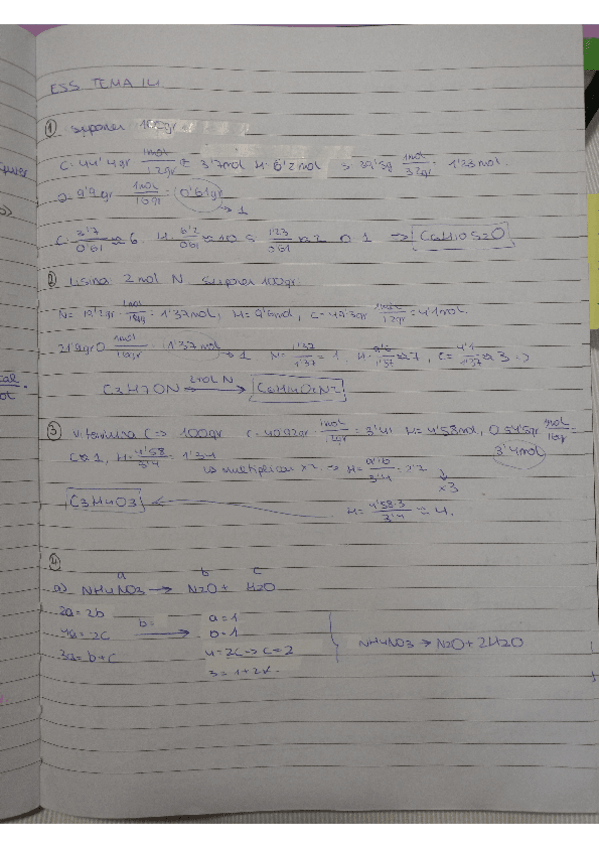 ESS TEMA 14
① suponer 100gr
C: 44'4gr 1mol/12gr ≈ 3'7mol H: 6'2mol S: 39'5g 1mol/32gr = 1'23mol.
O: 9'9gr 1mol/16gr = 0'61gr
→ 1
C: 3'7/0'61 ≈ 6. H: 6'2/0'61 ≈ 10 S 1'23/0'61 ≈ 2 O 1 => C6H10S2O
② Lisina 2mol N suponer 100gr
N = 19'2gr · 1mol/14gr = 1'37mol, H = 9'6mol, C = 49'3gr · 1mol/12gr = 4'1mol.
21'9grO 1mol/16gr = 1'37mol → 1 N = 1'37/1'37 = 1, H = 9'6/1'37 ≈ 7, C = 4'1/1'37 ≈ 3 =>
C3H7ON 2mol N → C6H14O2N2
③ vitamina C => 100gr C: 40'92gr · 1mol/12gr = 3'41 H = 4'58mol, O 54'5gr 1mol/16gr =
3'4mol
C ≈ 1, H = 4'58/3'4 = 1'34
↳ multiplicar x2 => H = 9'16/3'4 = 2'7
↓
x3
C3H4O3 ← H = 4'58·3/3'4 ≈ 4.
④
a b c
a) NH4NO3 → N2O + H2O
2a = 2b a = 1
4a = 2c → b = 1
3a = b + c 4 = 2c -> c = 2 NH4NO3 → N2O + 2H2O
3 = 1 + 2 ✓.